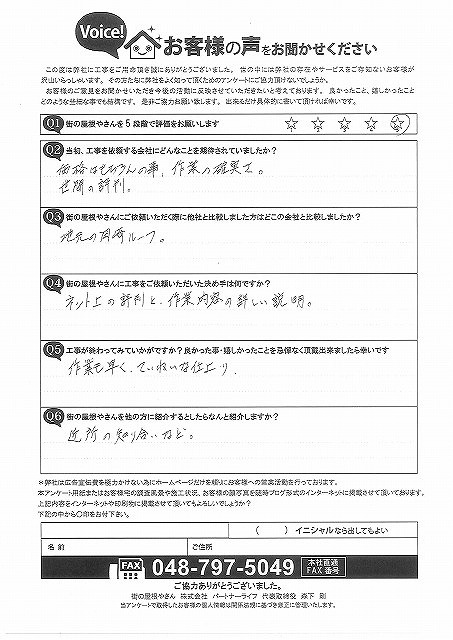 Voice!
お客様の声をお聞かせください
この度は弊社に工事をご用命頂き誠にありがとうございました。世の中には弊社の存在やサービスをご存知ないお客様が
沢山いらっしゃいます。その方たちに弊社をよく知って頂くためのアンケートにご協力頂けないでしょうか。
お客様のご意見をお聞かせいただき今後の活動に反映させていただきたいと考えております。良かったこと、嬉しかったこと
どのような些細な事でも結構です。是非ご協力お願い致します。出来るだけ具体的に書いて頂ければ幸いです。
Q1 街の屋根やさんを5段階で評価をお願いします ☆ ☆ ☆ ☆ ☆
Q2 当初、工事を依頼する会社にどんなことを期待されていましたか?
価格はもちろんの事、作業の確実さ。
世間の評判。
Q3 街の屋根やさんにご依頼いただく際に他社と比較しました方はどこの会社と比較しましたか?
地元の ルーフ。
Q4 街の屋根やさんに工事をご依頼いただいた決め手は何ですか?
ネット上の評判と、作業内容の詳しい説明。
Q5 工事が終わってみていかがですか?良かった事・嬉しかったことを忌憚なく頂戴出来ましたら幸いです
作業も早く、ていねいな仕上り.
Q6 街の屋根やさんを他の方に紹介するとしたらなんと紹介しますか?
近所の知り合いなど。
*弊社は広告宣伝費を極力かけない為にホームページだけを頼りにお客様への営業活動を行っております。
本アンケート用紙またはお客様宅の調査風景や施工状況、お客様の顔写真を随時ブログ形式のインターネットに掲載させて頂いております。
上記内容をインターネットや印刷物に掲載させて頂いてもよろしいでしょうか?
下記の中から〇印をお付け下さい。
( ) イニシャルなら出してもよい
名前 ご住所
FAX 048-797-5049 本社直通 FAX番号
ご協力ありがとうございました。
街の屋根やさん 株式会社 パートナーライフ 代表取締役 森下 剛
当アンケートで取得したお客様の個人情報は関係法規に基づき慎正に管理いたします。